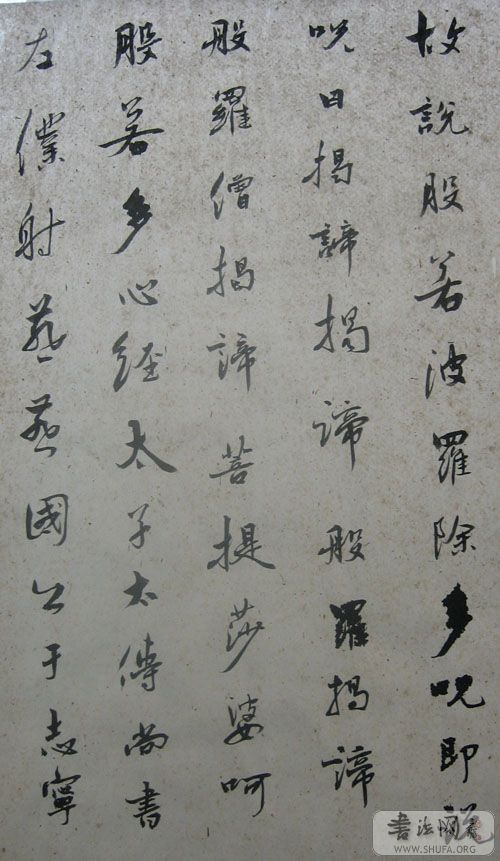 故說般若波羅除多呪即說
呪曰揭諦揭諦般羅揭諦
般羅僧揭諦菩提莎婆呵
般若多心經太子太傅尚書
左僕射燕燕國公于志寧
WWW.SHUFA.ORG